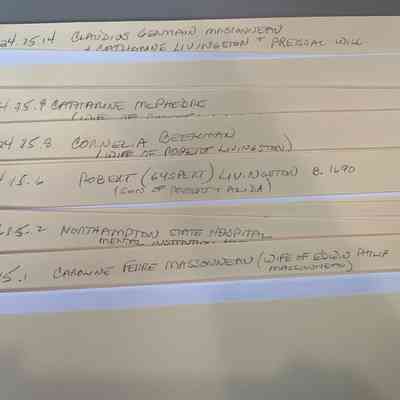 24.75.14 CLAUDIUS GERMAIN MASSONNEAU
+ CATHARINE LIVINGSTON + PRESSAL WILL
75.9 CATHARINE MCPHEDRE
(WIFE OF ROBERT LIVINGSTON)
24 75.8 CORNELIA BEEKMAN
(WIFE OF ROBERT LIVINGSTON)
4 75.6 ROBERT (GYSBERT) LIVINGSTON B. 1690
(SON OF ROBERT + ALIDA)
75.2 NORTHAMPTON STATE HOSPITAL
MENTAL INSTITUTION
75.1 CAROLINE FERRE MASSONNEAU (WIFE OF EDWIN PHILIP
MASSONNEAU)